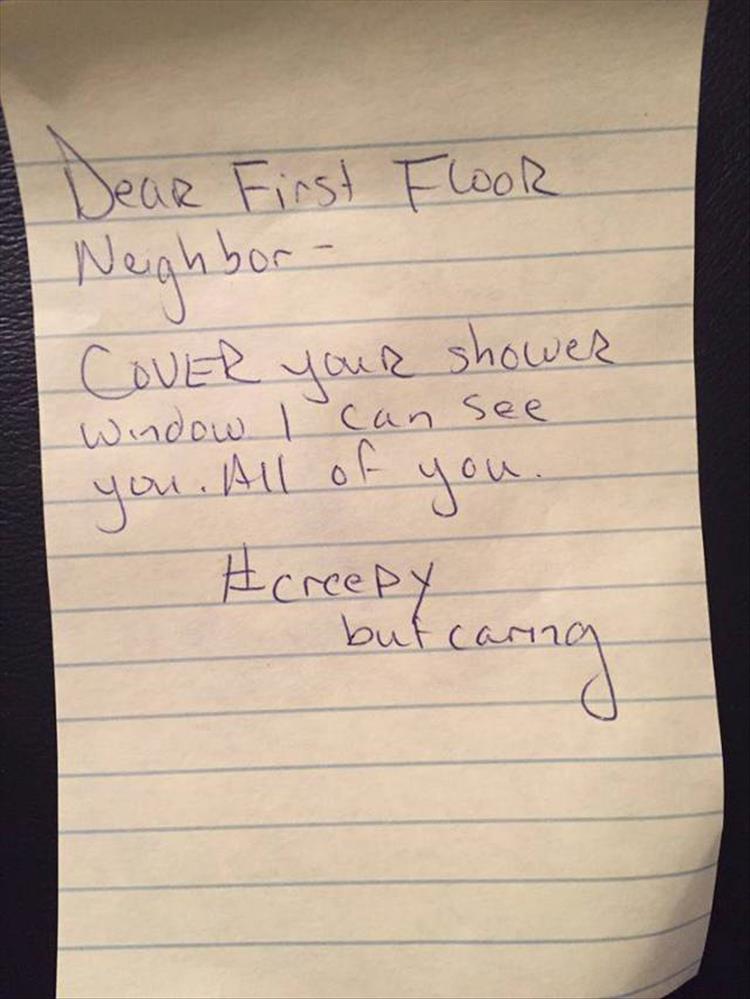 Dear First Floor
Neighbor-
COVER your shower
window I can see
you. All of you.
#creepy
but caring